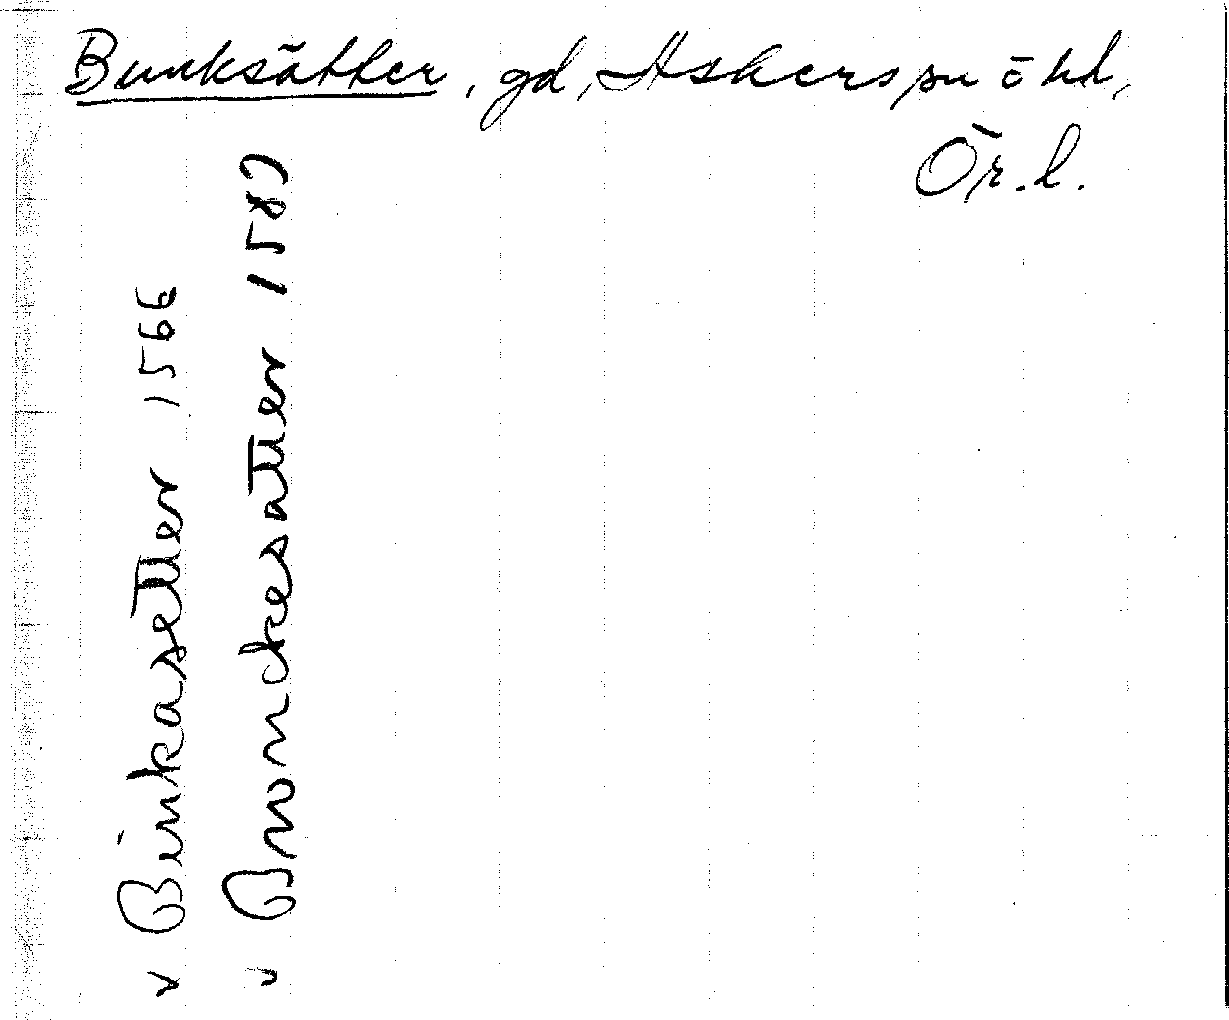 Bunksätter, gd, Askers sn o hd,
Ör. l.
v Binkasetter 1566
v Bronckesätter 1582